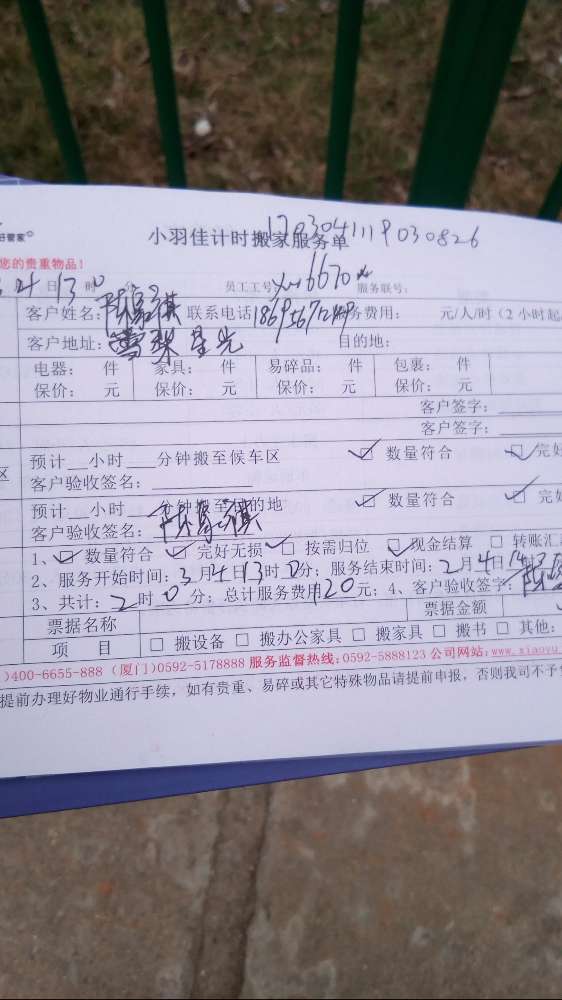 好管家
小羽佳计时搬家服务单
1703041119030826
您的贵重物品!
4日13时0分 员工工号: 6670 服务联号:
客户姓名: 联系电话 务费用: 元/人/时(2小时起
客户地址: 星光 目的地:
电器: 件 家具: 件 易碎品: 件 包裹: 件
保价: 元 保价: 元 保价: 元 保价: 元
客户签字:
客户签字:
区 预计__小时___分钟搬至候车区 ☑ 数量符合 ☑ 完好
客户验收签名:
预计__小时___分钟搬至目的地 ☑ 数量符合 ☑ 完好
客户验收签名:
1、☑ 数量符合 ☑ 完好无损 ☑ 按需归位 ☑ 现金结算 □ 转账汇
2、服务开始时间:3月4日13时0分;服务结束时间:2月4日
3、共计:2时0分;总计服务费用120元;4、客户验收签字:
票据名称 票据金额
项 目 □ 搬设备 □ 搬办公家具 □ 搬家具 □ 搬书 □ 其他:
)400-6655-888 (厦门)0592-5178888 服务监督热线:0592-5888123 公司网站:www.xiaoyu
提前办理好物业通行手续,如有贵重、易碎或其它特殊物品请提前申报,否则我司不予